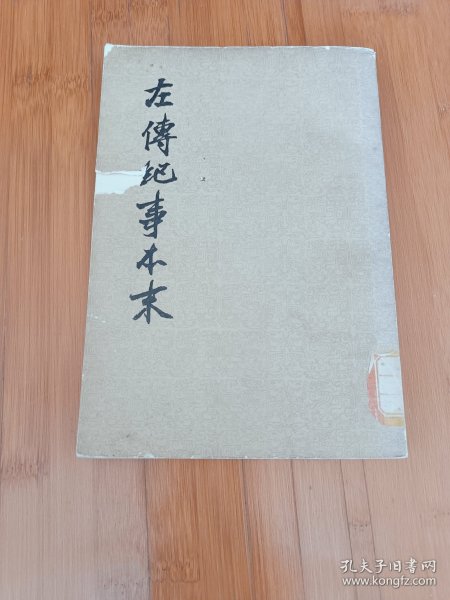 左傳紀事本末
孔夫子旧书网
www.kongfz.com